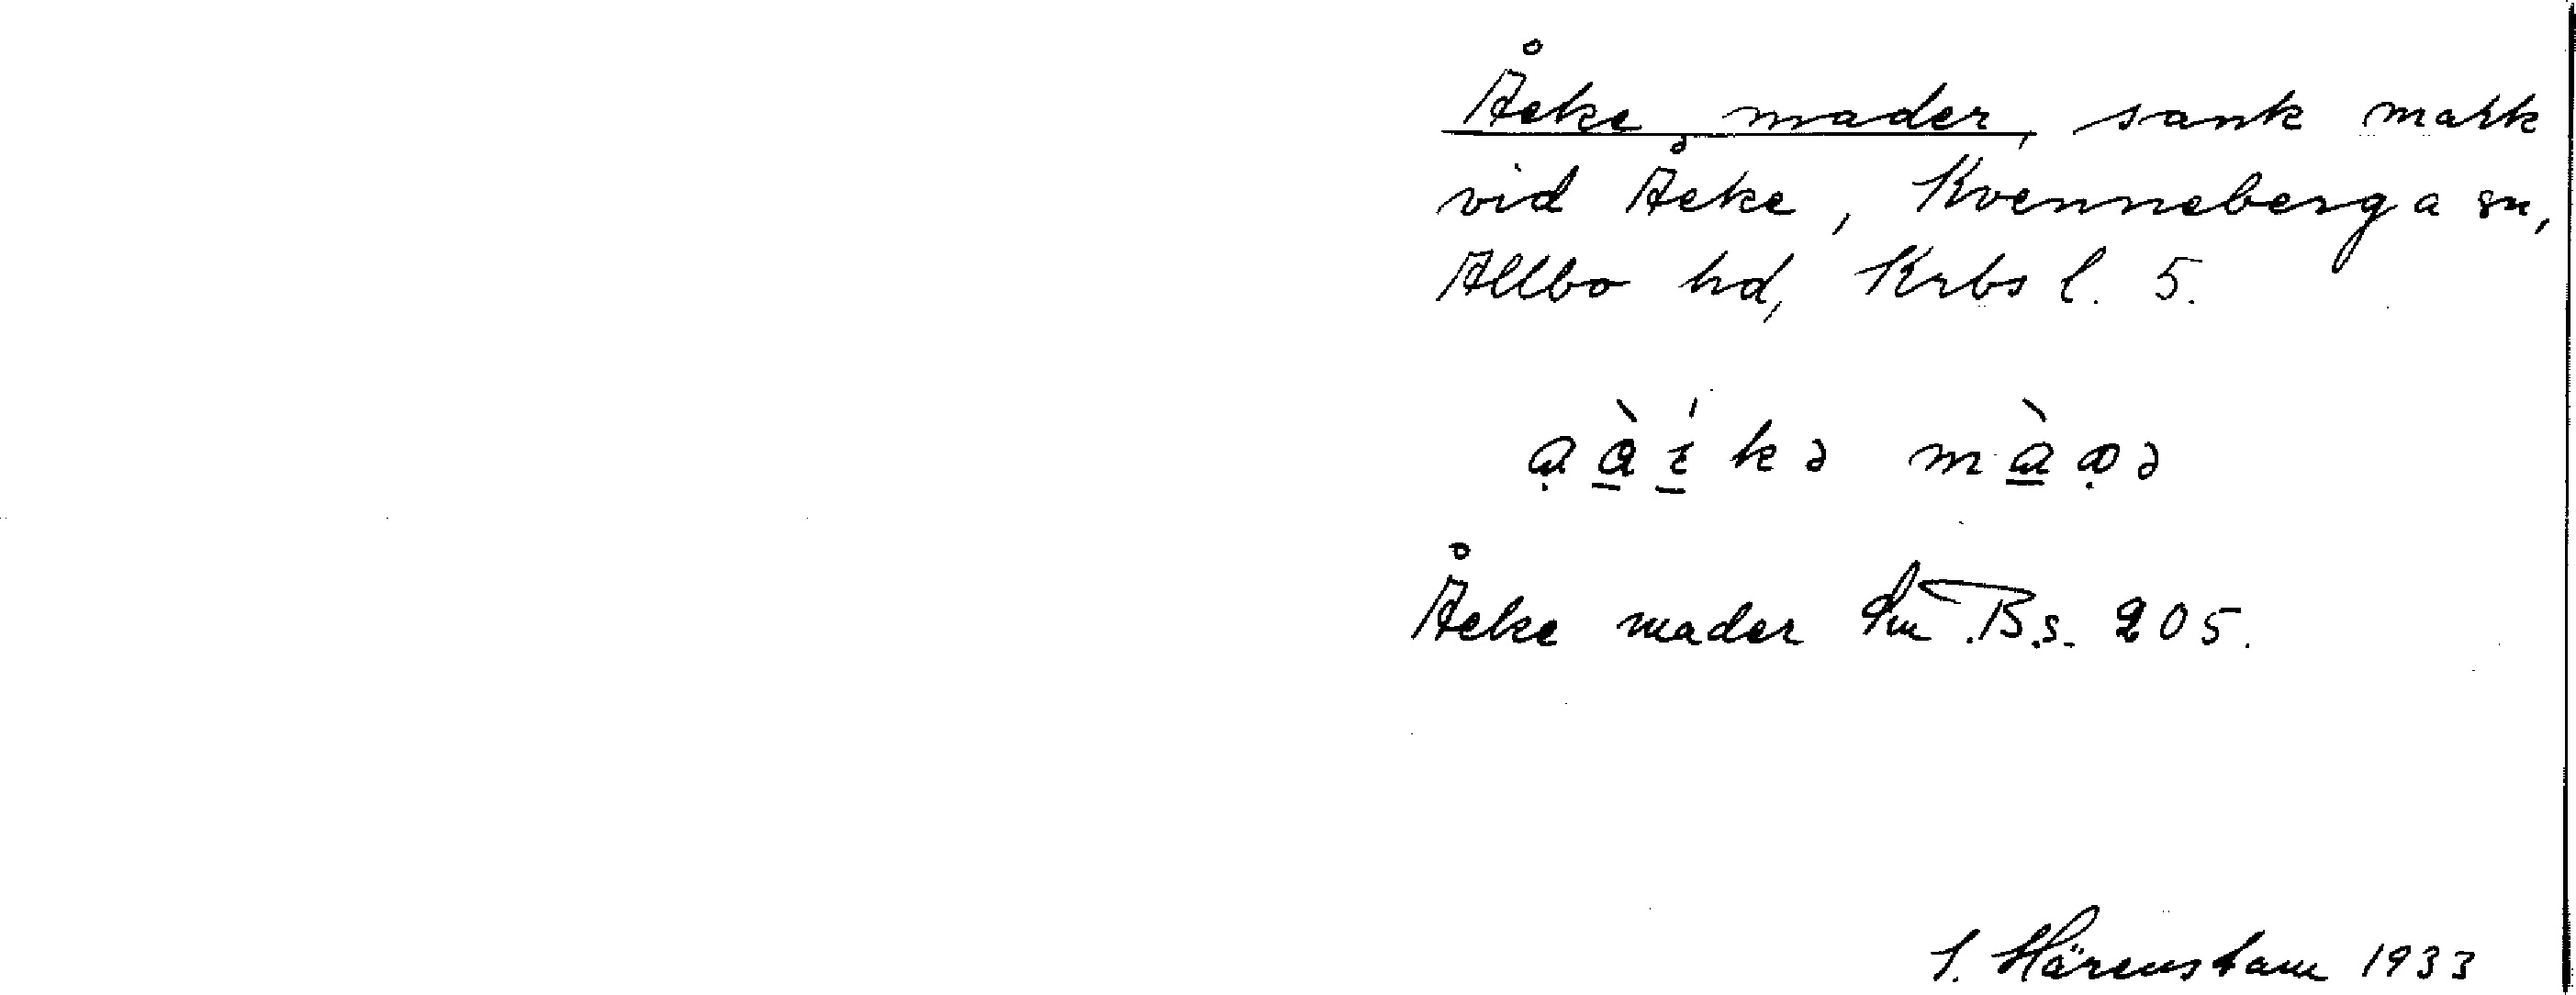 Åeke mader, sank mark
vid Åeke, Kvenneberga sn,
Allbo hd, Krbs l. 5.
Åeke mader Sm B.s. 205.
S. Härenstam 1933